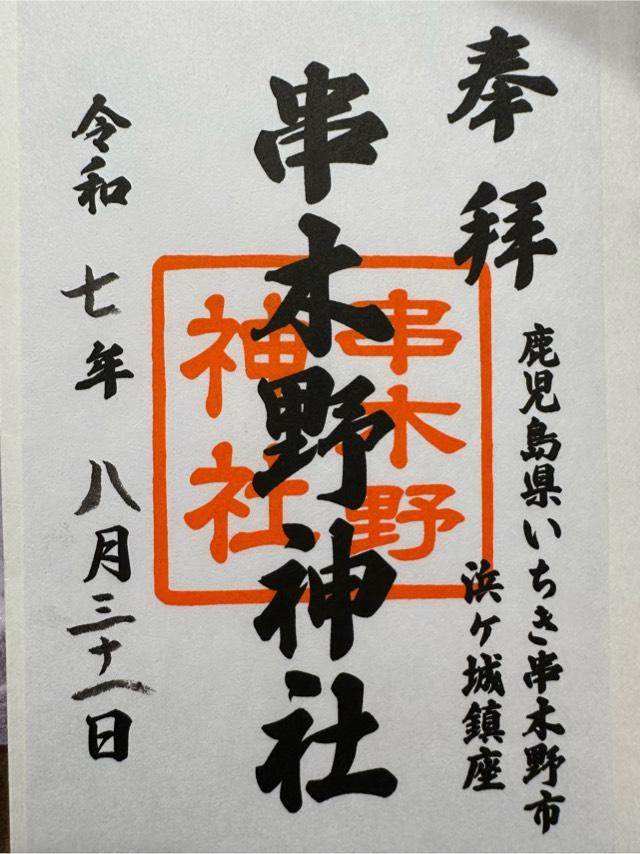 奉拝
鹿児島県いちき串木野市
浜ケ城鎮座
串木野神社
串木野
神社
令和七年八月三十一日